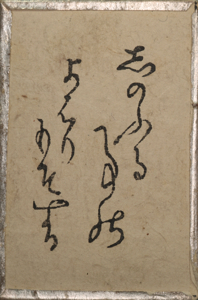 志のふる
ことの
よはり
もそする